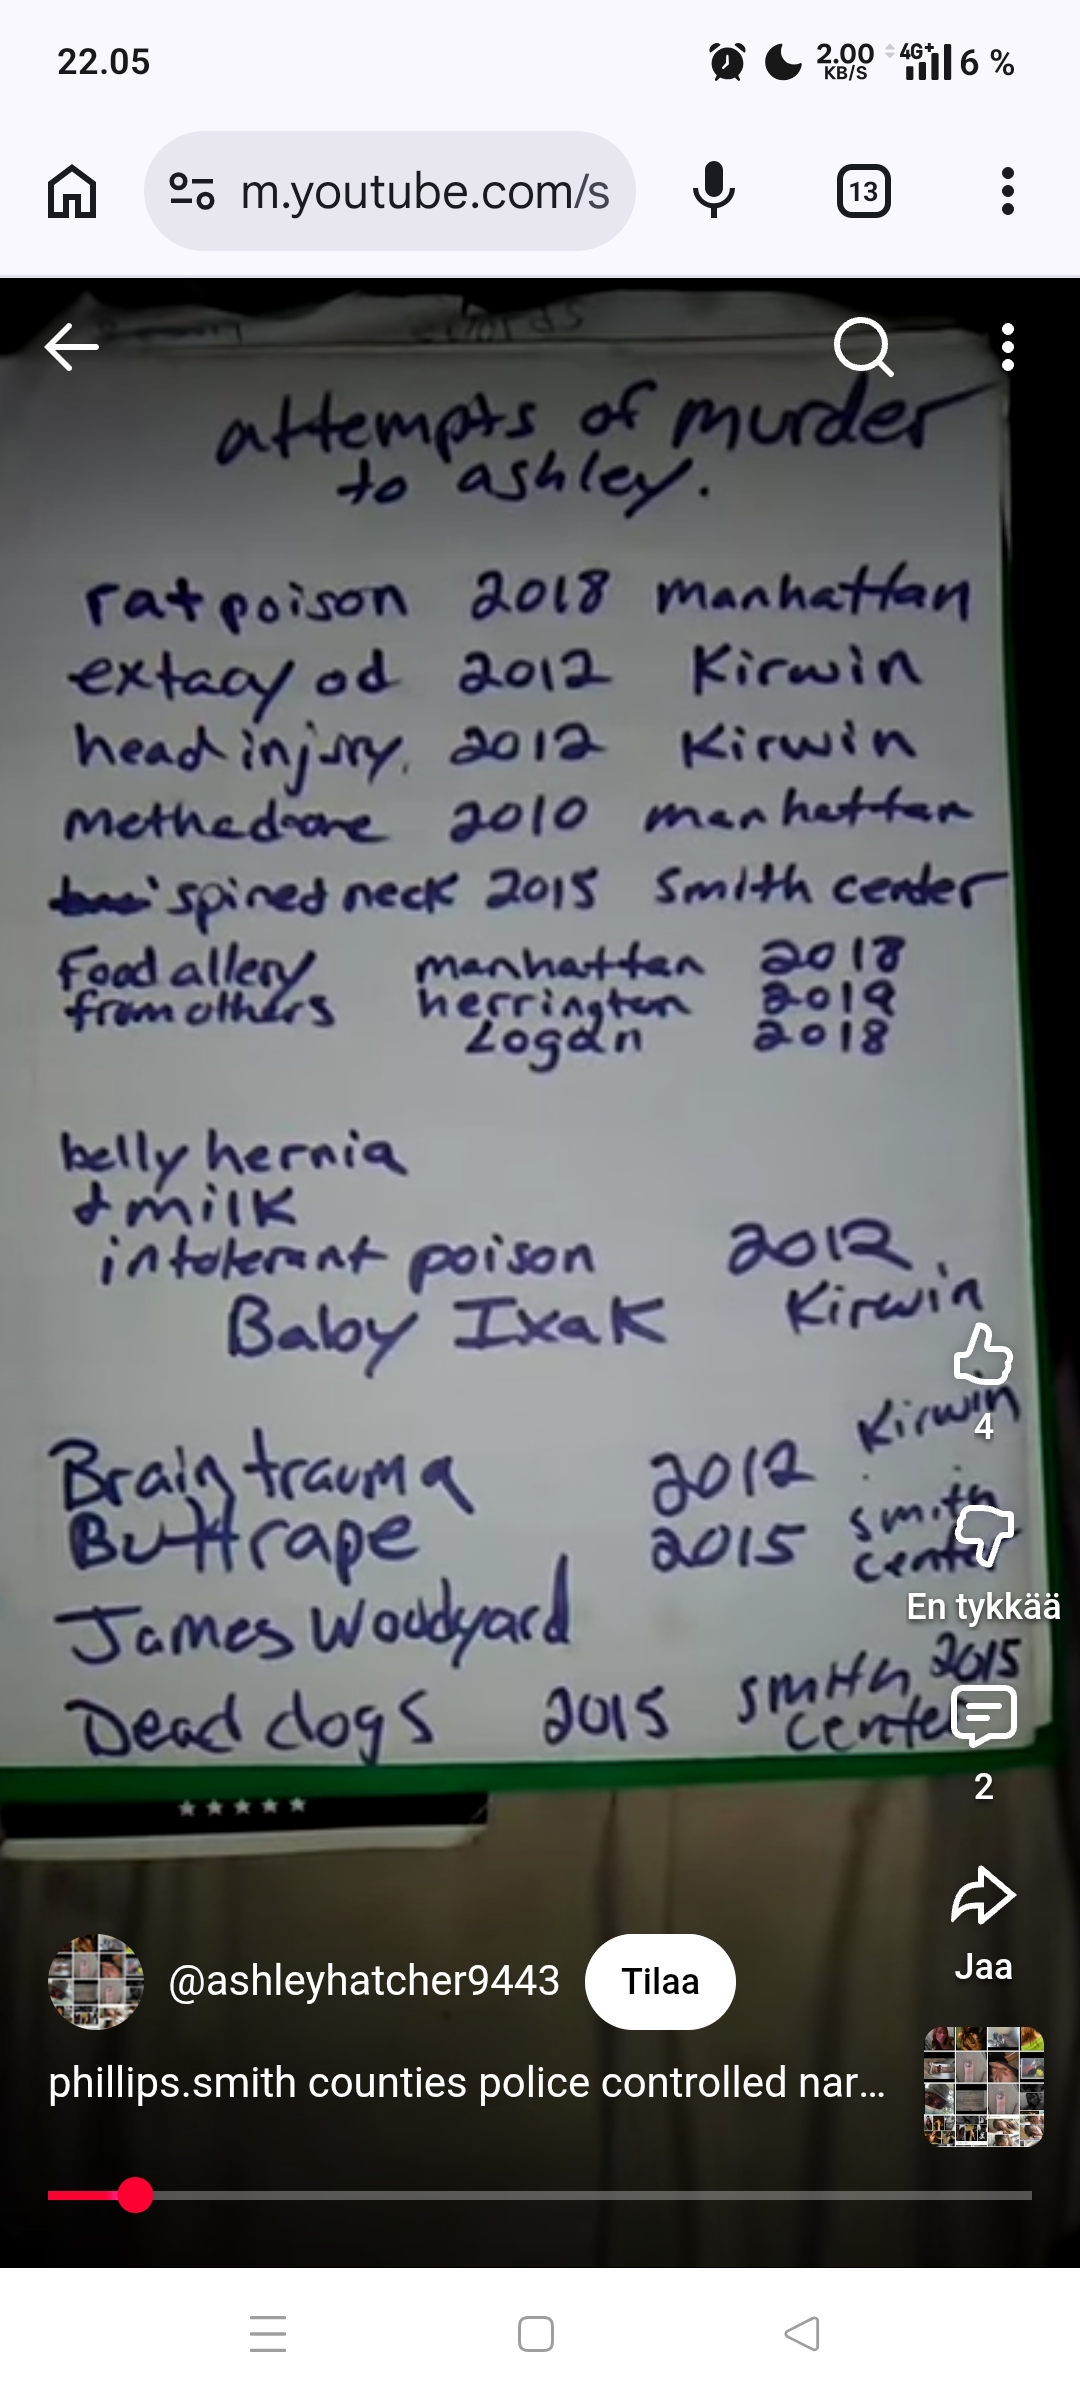 22.05
2.00 KB/S 4G+ 6 %
m.youtube.com/s
13
attempts of murder
to ashley.
rat poison 2018 manhattan
extacy od 2012 Kirwin
head injury. 2012 Kirwin
methadone 2010 manhattan
spined neck 2015 Smith center
Food allery manhattan 2018
from others herrington 2019
Logan 2018
belly hernia
+ milk
intolerant poison 2012
Baby Ixak Kirwin
Kirwin
4
Brain trauma 2012
Butt rape 2015 smith
center
En tykkää
James Woodyard
2015
Dead dogs 2015 smith
center
2
Jaa
@ashleyhatcher9443 Tilaa
phillips.smith counties police controlled nar...